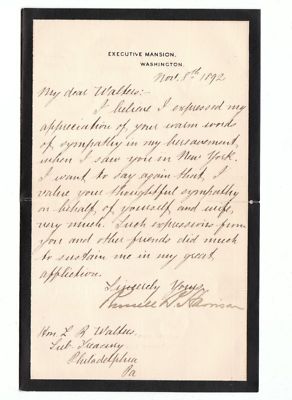 EXECUTIVE MANSION,
WASHINGTON.
Nov. 8th 1892
My dear Walters:-
I believe I expressed my
appreciation of your warm words
of sympathy in my bereavement,
when I saw you in New York.
I want to say again that, I
value your thoughtful sympathy
on behalf of yourself and wife,
very much. Such expressions from
you and other friends did much
to sustain me in my great
affliction.
Sincerely Yours,
Russell B. Harrison
Hon. L. R. Walters
Sub. Treasury
Philadelphia
Pa